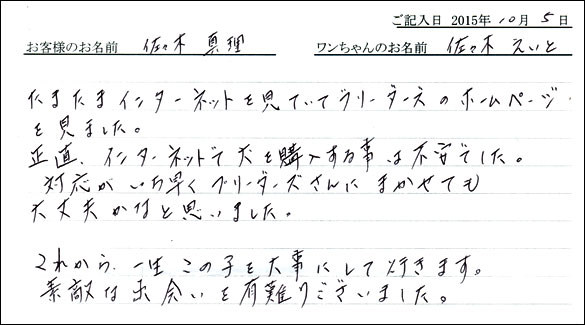 ご記入日 2015年 10月 5日
お客様のお名前 佐々木 真理 ワンちゃんのお名前 佐々木 えいと
たまたまインターネットを見ていてブリーダーズのホームページ
を見ました。
正直、インターネットで犬を購入する事は不安でした。
対応がいち早くブリーダーズさんにまかせても
大丈夫かなと思いました。
これから、一生この子を大事にして行きます。
素敵な出会いを有難うございました。